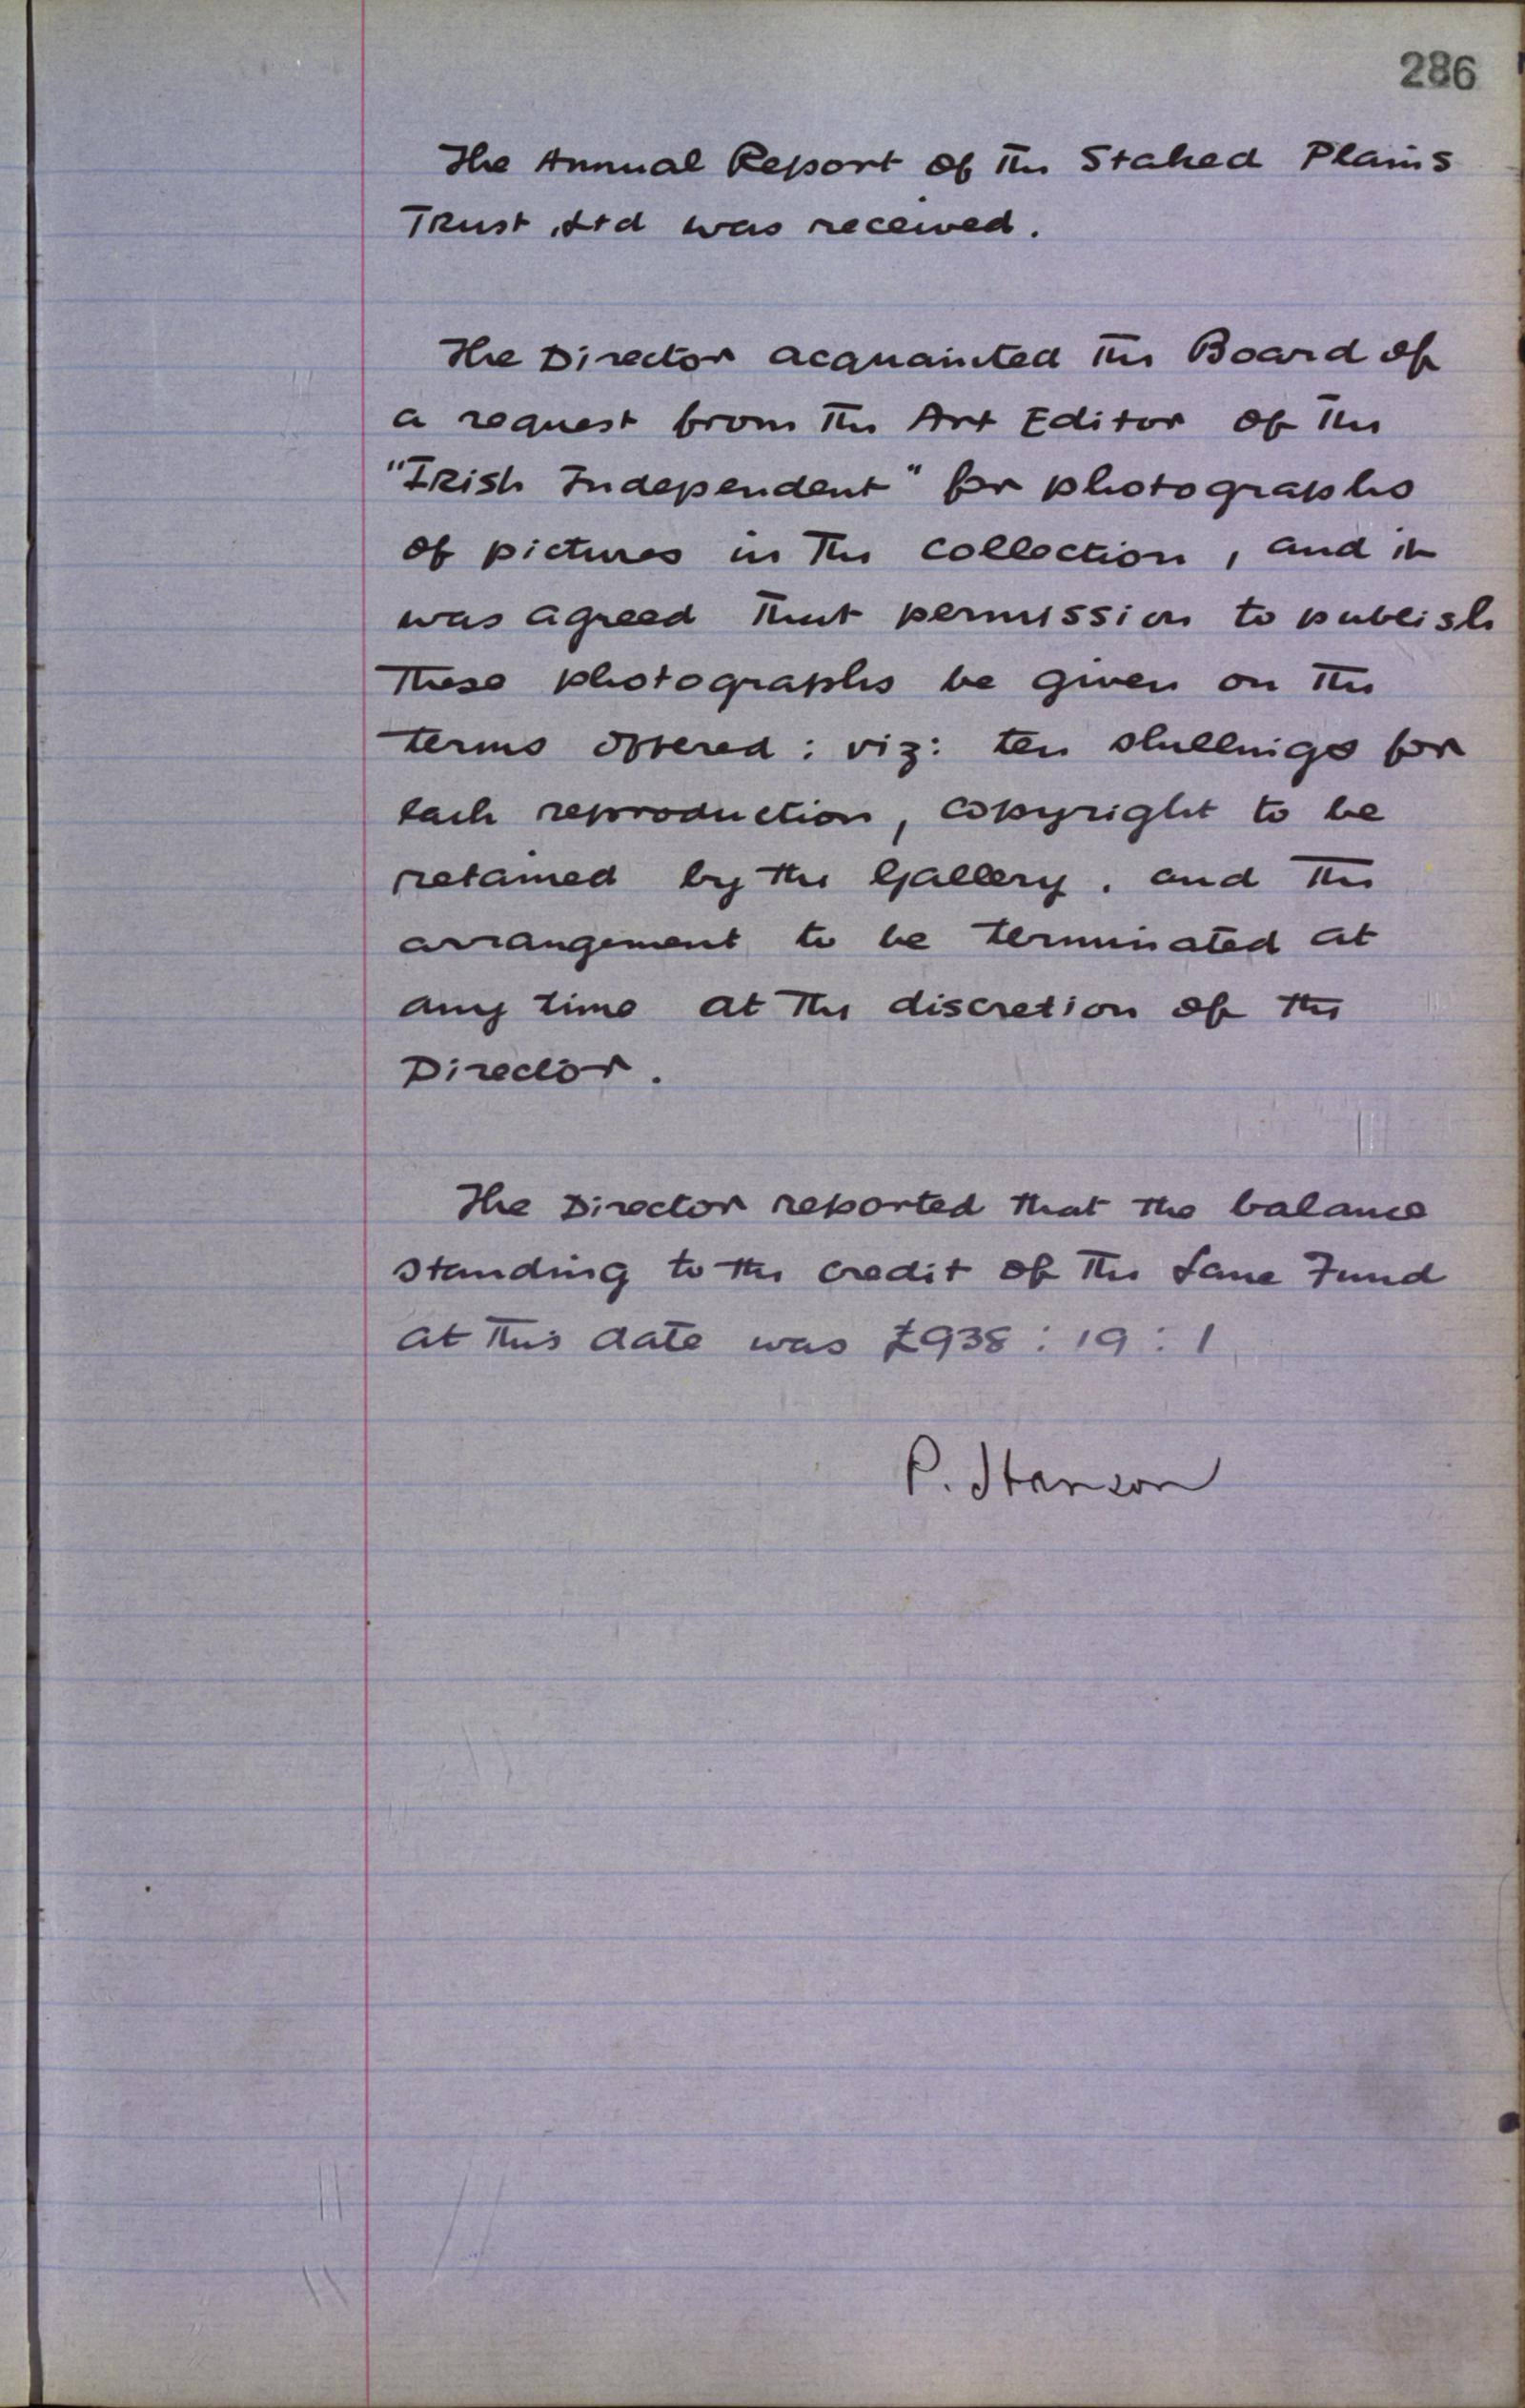 286
The Annual Report of the Staked Plains
Trust, Ltd was received.
The Director acquainted the Board of
a request from the Art Editor of the
"Irish Independent" for photographs
of pictures in the collection, and it
was agreed that permission to publish
these photographs be given on the
terms offered: viz: ten shillings for
each reproduction, copyright to be
retained by the Gallery, and the
arrangement to be terminated at
any time at the discretion of the
Director.
The Director reported that the balance
standing to the credit of the Lane Fund
at this date was £938:19:1
P. Hanson